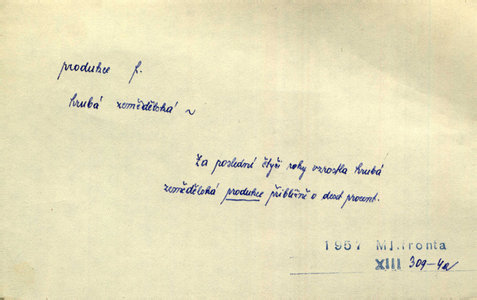 produkce f.
hrubá zemědělská ~
Za poslední čtyři roky vzrostla hrubá
zemědělská produkce přibližně o deset procent.
1957 Ml.fronta
XIII 309-4a